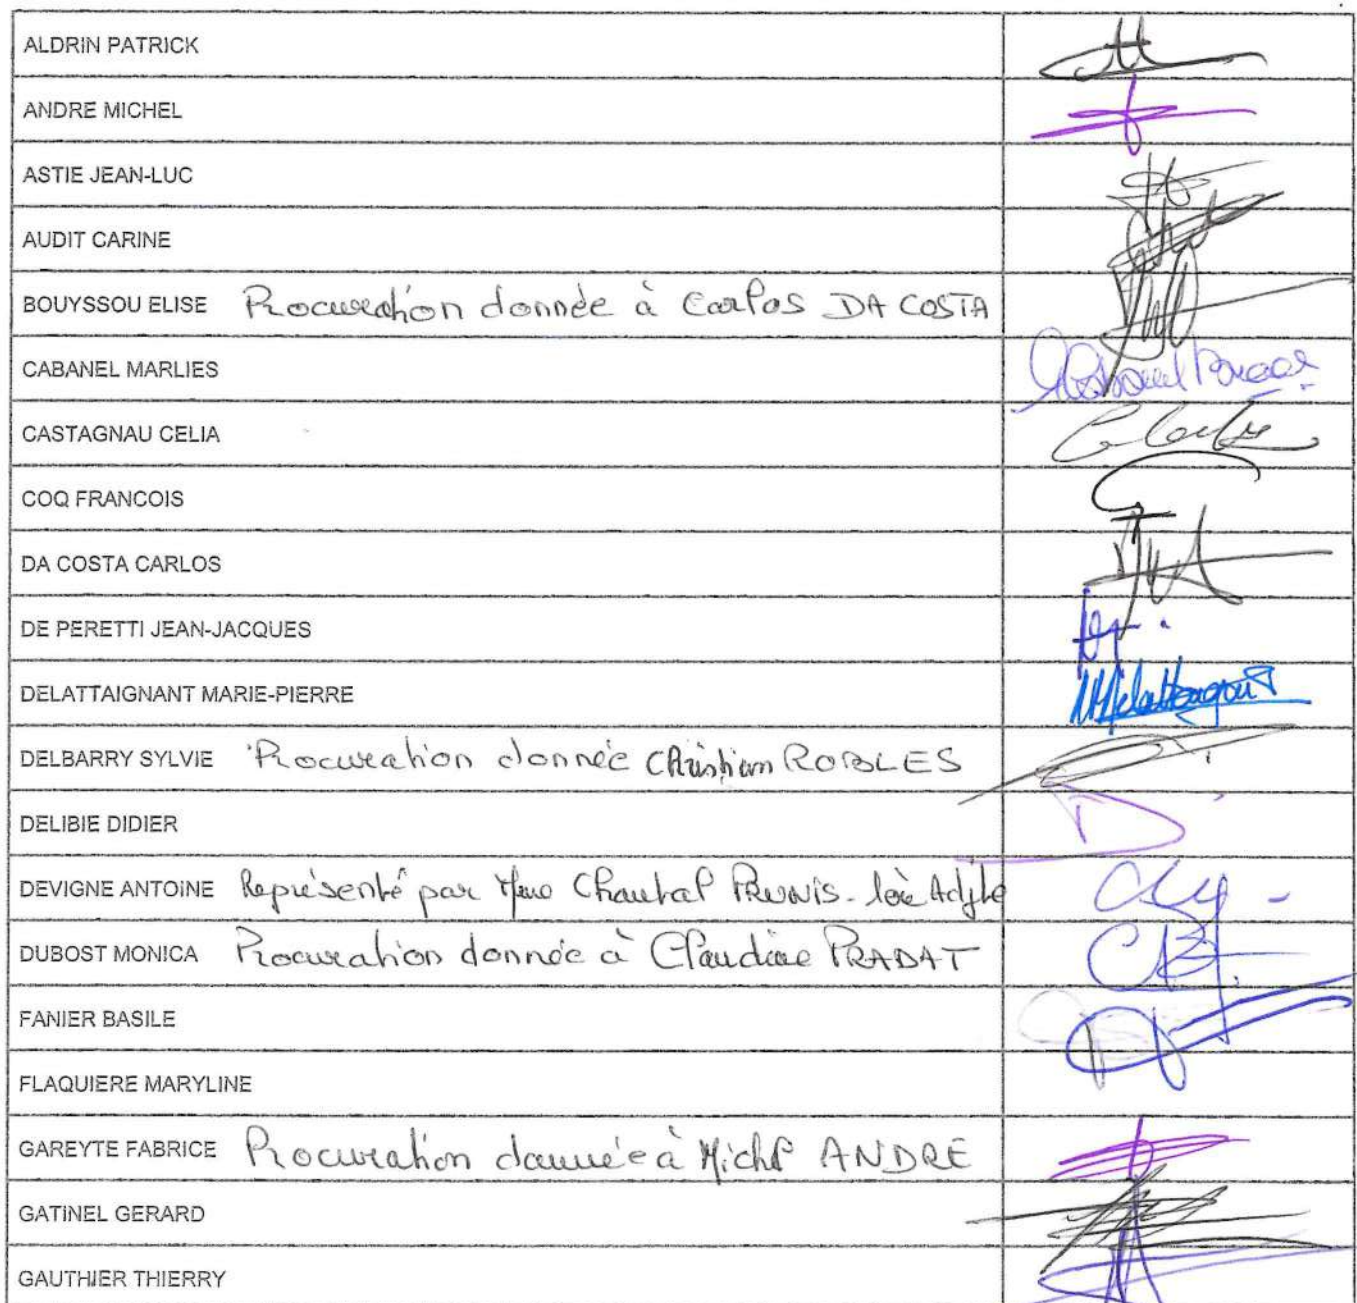 ALDRIN PATRICK
ANDRE MICHEL
ASTIE JEAN-LUC
AUDIT CARINE
BOUYSSOU ELISE Procuration donnée à Carlos DA COSTA
CABANEL MARLIES
CASTAGNAU CELIA
COQ FRANCOIS
DA COSTA CARLOS
DE PERETTI JEAN-JACQUES
DELATTAIGNANT MARIE-PIERRE
DELBARRY SYLVIE Procuration donnée Christian ROBLES
DELIBIE DIDIER
DEVIGNE ANTOINE Représenté par Mme Chantal PRUNIS - 1ère Adjte
DUBOST MONICA Procuration donnée à Claudine PRADAT
FANIER BASILE
FLAQUIERE MARYLINE
GAREYTE FABRICE Procuration donnée à Michel ANDRE
GATINEL GERARD
GAUTHIER THIERRY